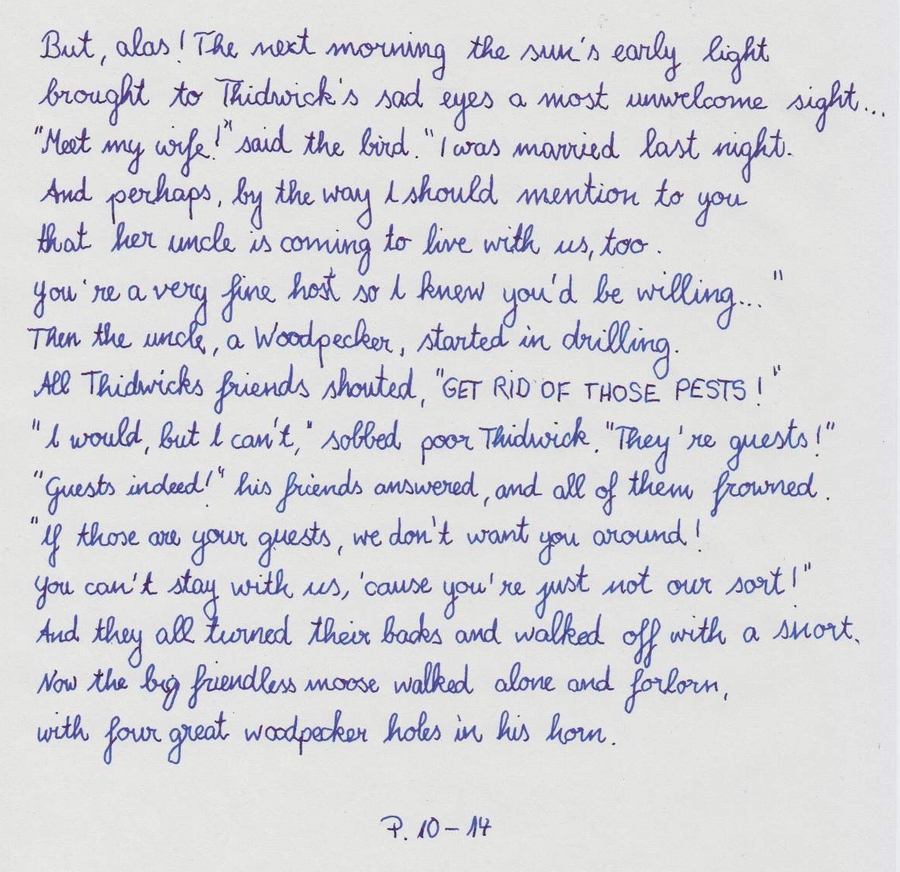 But, alas! The next morning the sun's early light
brought to Thidwick's sad eyes a most unwelcome sight...
"Meet my wife!" said the bird. "I was married last night.
And perhaps, by the way I should mention to you
that her uncle is coming to live with us, too.
You're a very fine host so I knew you'd be willing..."
Then the uncle, a Woodpecker, started in drilling.
All Thidwicks friends shouted, "GET RID OF THOSE PESTS!"
"I would, but I can't," sobbed poor Thidwick. "They're guests!"
"Guests indeed!" his friends answered, and all of them frowned.
"If those are your guests, we don't want you around!
You can't stay with us, 'cause you're just not our sort!"
And they all turned their backs and walked off with a snort.
Now the big friendless moose walked alone and forlorn,
with four great woodpecker holes in his horn.
P. 10-14